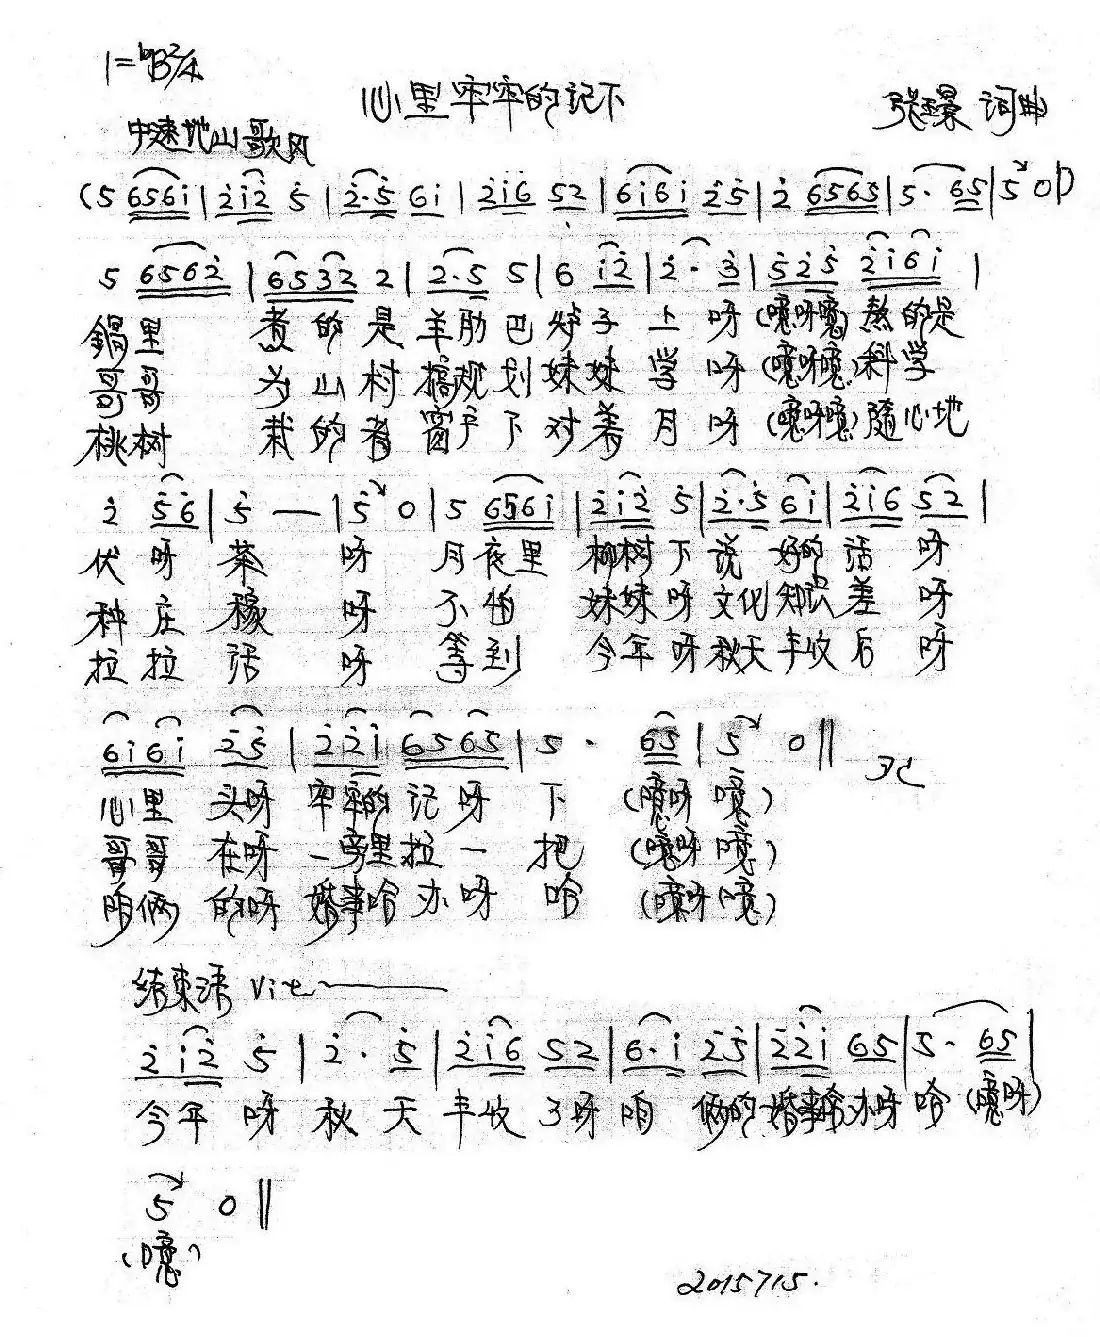 1=ᵇB 2/4
心里牢牢的记下
词曲
中速地山歌风
(5 656i | 2i2 5 | 2·5 6i | 2i6 52 | 6i6i 25 | 2 6565 | 5· 65 | 5 0)
5 6562 | 6532 2 | 2·5 5 | 6 i2 | 2· 3 | 525 2i6i |
鍋里 煮的是羊肋巴炉子上呀(噫呀噫)熬的是
哥哥 为山村搞规划妹妹学呀(噫呀噫)科学
桃树 栽的者窗户下对着月呀(噫呀噫)随心地
2 56 | 5 — | 5 0 | 5 656i | 2i2 5 | 2·5 6i | 2i6 52 |
伏呀茶呀月夜里柳树下说好的话呀
种庄稼呀不怕妹妹呀文化知识差呀
拉拉话呀等到今年呀秋天丰收后呀
6i6i 25 | 22i 6565 | 5· 65 | 5 0 ‖
心里头呀牢牢的记呀下(噫呀噫)
哥哥在呀一旁里拉一把(噫呀噫)
咱俩的呀婚事哈办呀哈(噫呀噫)
结束语
2i2 5 | 2· 5 | 2i6 52 | 6·i 25 | 22i 65 | 5· 65 |
今年呀秋天丰收了呀咱俩的婚事哈办呀哈(噫呀)
5 0 ‖
(噫)
2015715.